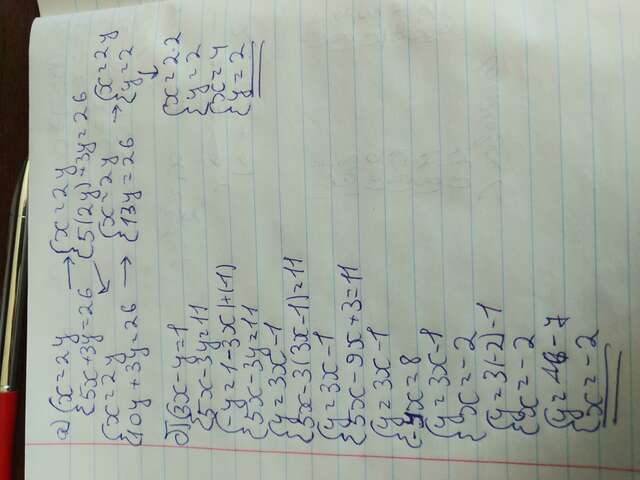 а) {x=2y
{5x+3y=26 → {x=2y
{5(2y)+3y=26
{x=2y
{10y+3y=26 → {x=2y
{13y=26 → {x=2y
{y=2
{x=2·2
{y=2
{x=4
{y=2
б) {3x-y=1
{5x-3y=11
{-y=1-3x|·(-1)
{5x-3y=11
{y=3x-1
{5x-3(3x-1)=11
{y=3x-1
{5x-9x+3=11
{y=3x-1
{-4x=8
{y=3x-1
{x=-2
{y=3(-2)-1
{x=-2
{y=-7
{x=-2